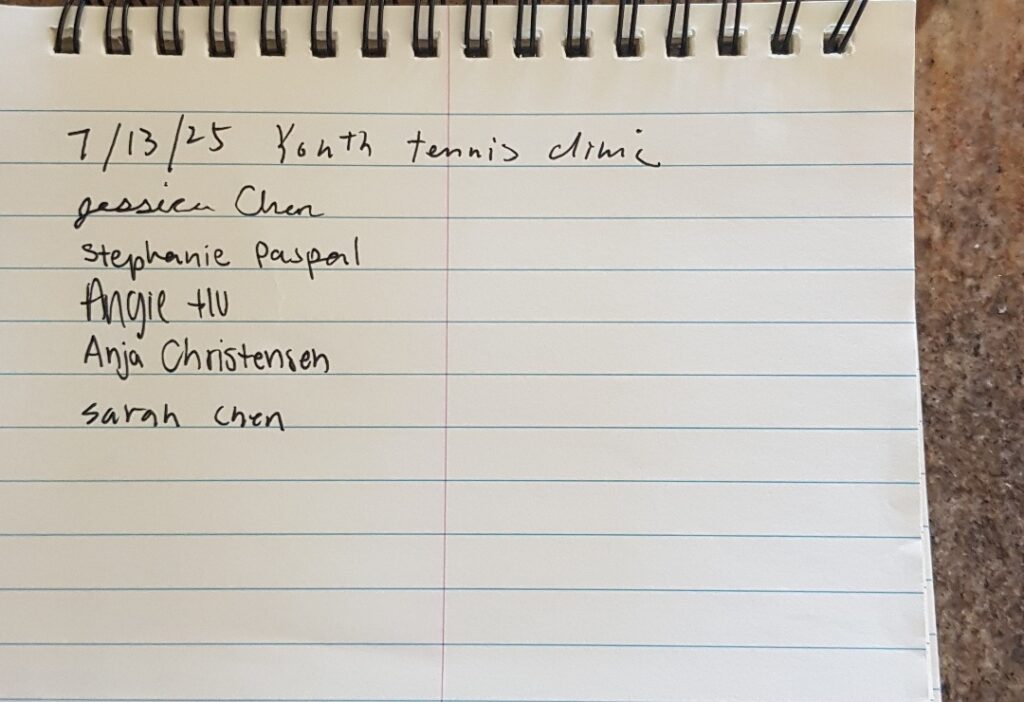 7/13/25 Youth tennis clinic
jessica Chen
Stephanie Paspal
Angie Hu
Anja Christensen
sarah chen